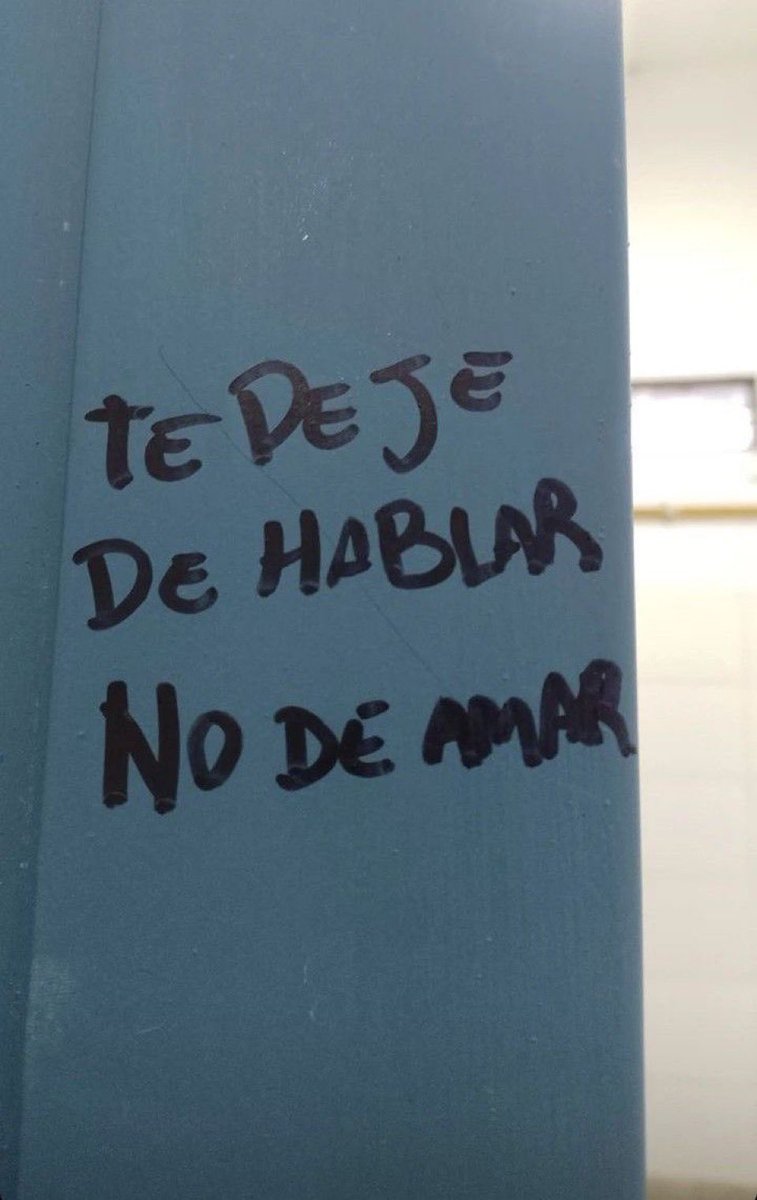 TE DEJE
DE HABLAR
NO DE AMAR